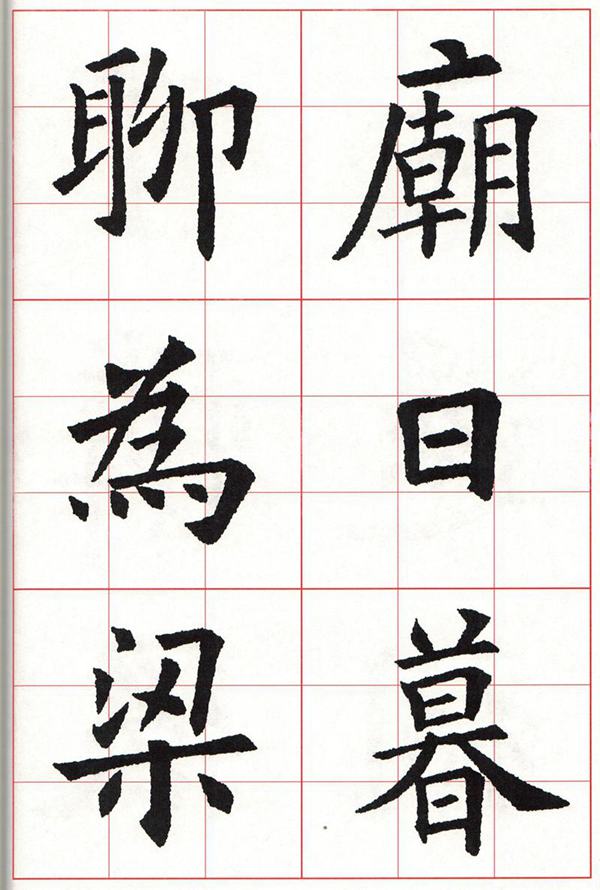 廟日暮
聊為梁